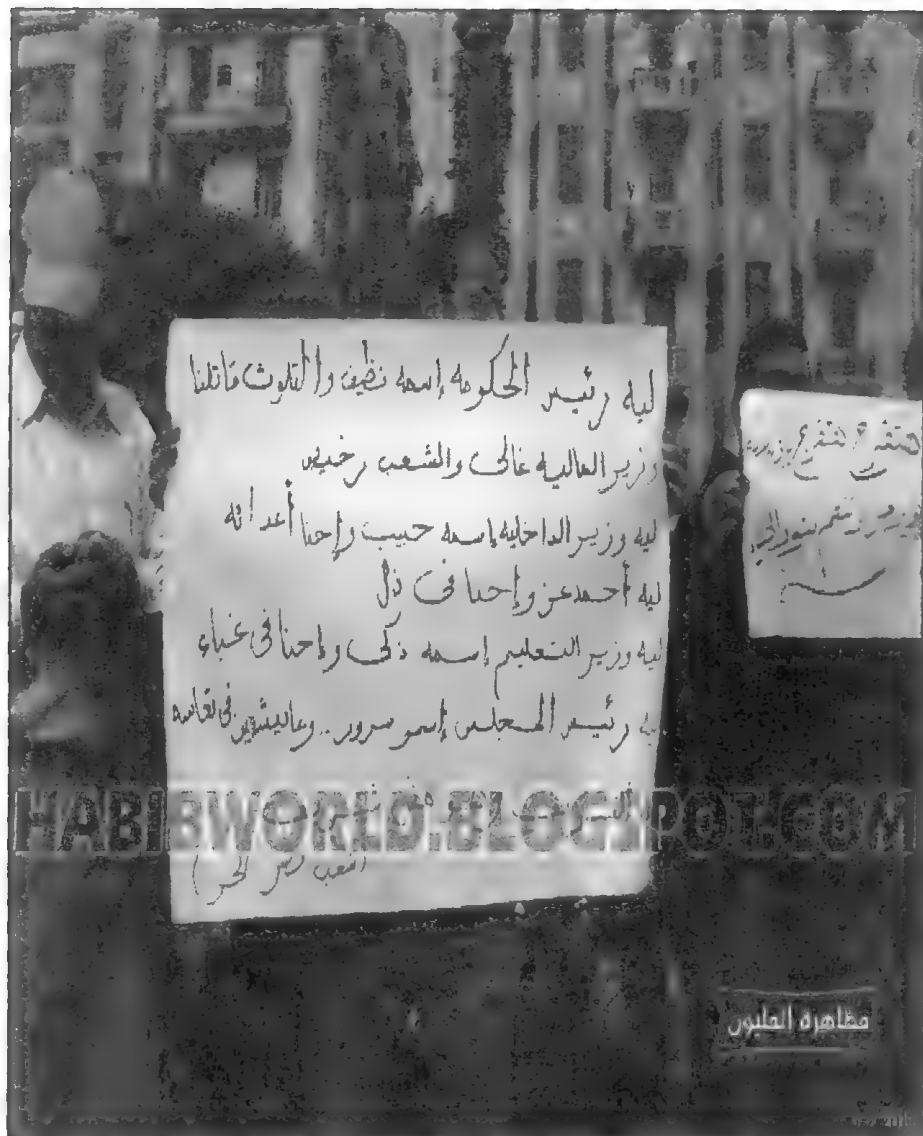 ليه رئيس الحكومه إسمه نظيف والتلوث قاتلنا
وزير الماليه غالى والشعب رخيص
ليه وزير الداخليه إسمه حبيب وإحنا أعدائه
ليه أحمد عز وإحنا فى ذل
ليه وزير التعليم إسمه ذكى وإحنا فى غباء
رئيس المجلس إسمو سرور.. وعايشين فى تعاسه
شعب مصر الحر
هتفرج هتفرج
HABIBWORLD.BLOGSPOT.COM
مظاهرة المليون